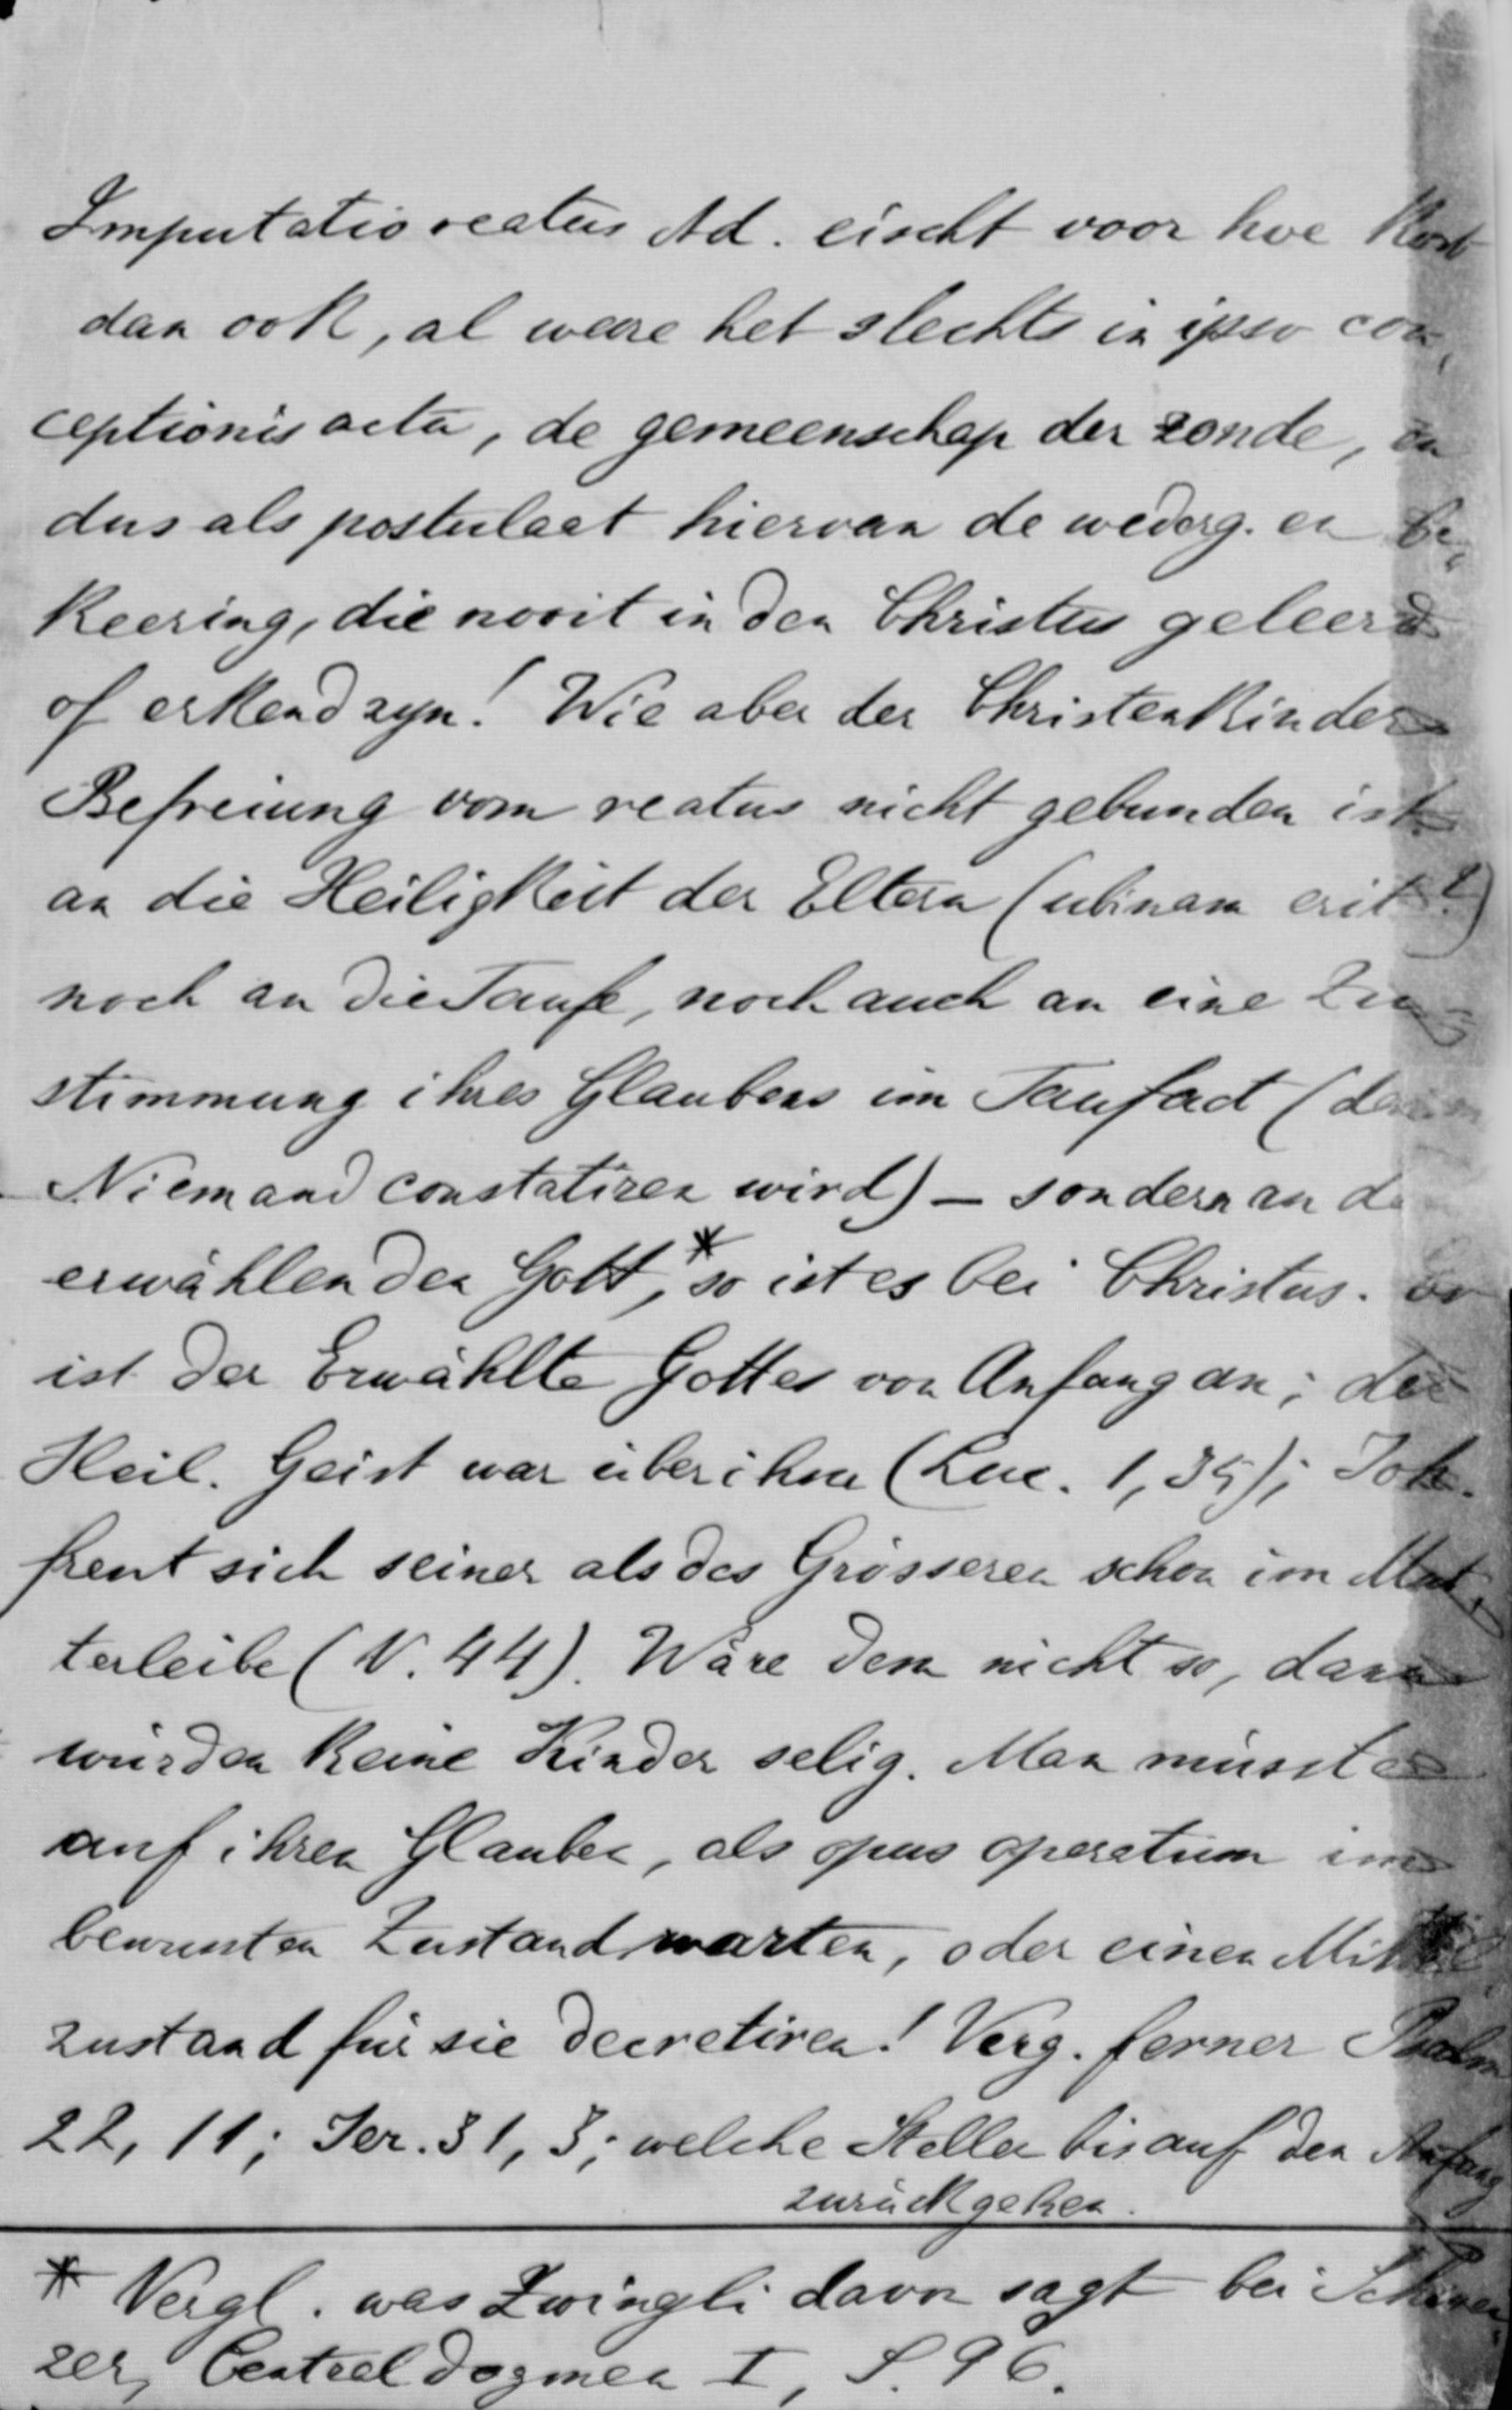 Imputatio reatus Ad. eischt voor hoe kort
dan ook, al ware het slechts in ipso con,
ceptionis actu, de gemeenschap der zonde, en
dus als postulaat hiervan de wederg. en be,
keering, die nooit in den Christus geleerd
of erkend zyn! Wie aber der Christenkinder
Befreiung vom reatus nicht gebunden ist
an die Heiligkeit der Eltern (ubinam erit?)
noch an die Taufe, noch auch an eine Zu=
stimmung ihres Glaubens im Taufact (den
Niemand constatiren wird) – sondern an
erwählenden Gott,* so ist es bei Christus.
ist der Erwählte Gottes von Anfang an; der
Heil. Geist war über ihm (Luc. 1,35); Joh.
freut sich seiner als des Grösseren schon im Mut,
terleibe (V. 44). Wäre dem nicht so, dann
würden keine Kinder selig. Man müsste
auf ihren Glauben, als opus operatum im
bewussten Zustand warten, oder einen Mittel
zustand für sie decretiren! Verg. ferner Psalm
22, 11; Jer. 31, 3; welche Stellen bis auf den Anfang
zurückgehen.
* Vergl. was Zwingli davon sagt bei Schwei
zer, Centraldogmen I, S. 96.